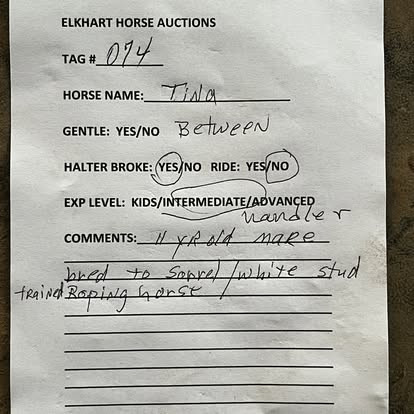 ELKHART HORSE AUCTIONS
TAG # 074
HORSE NAME: Tina
GENTLE: YES/NO Between
HALTER BROKE: YES/NO RIDE: YES/NO
EXP LEVEL: KIDS/INTERMEDIATE/ADVANCED
handler
COMMENTS: 11 yR old mare
bred to Sorrel/white stud
trained Roping horse